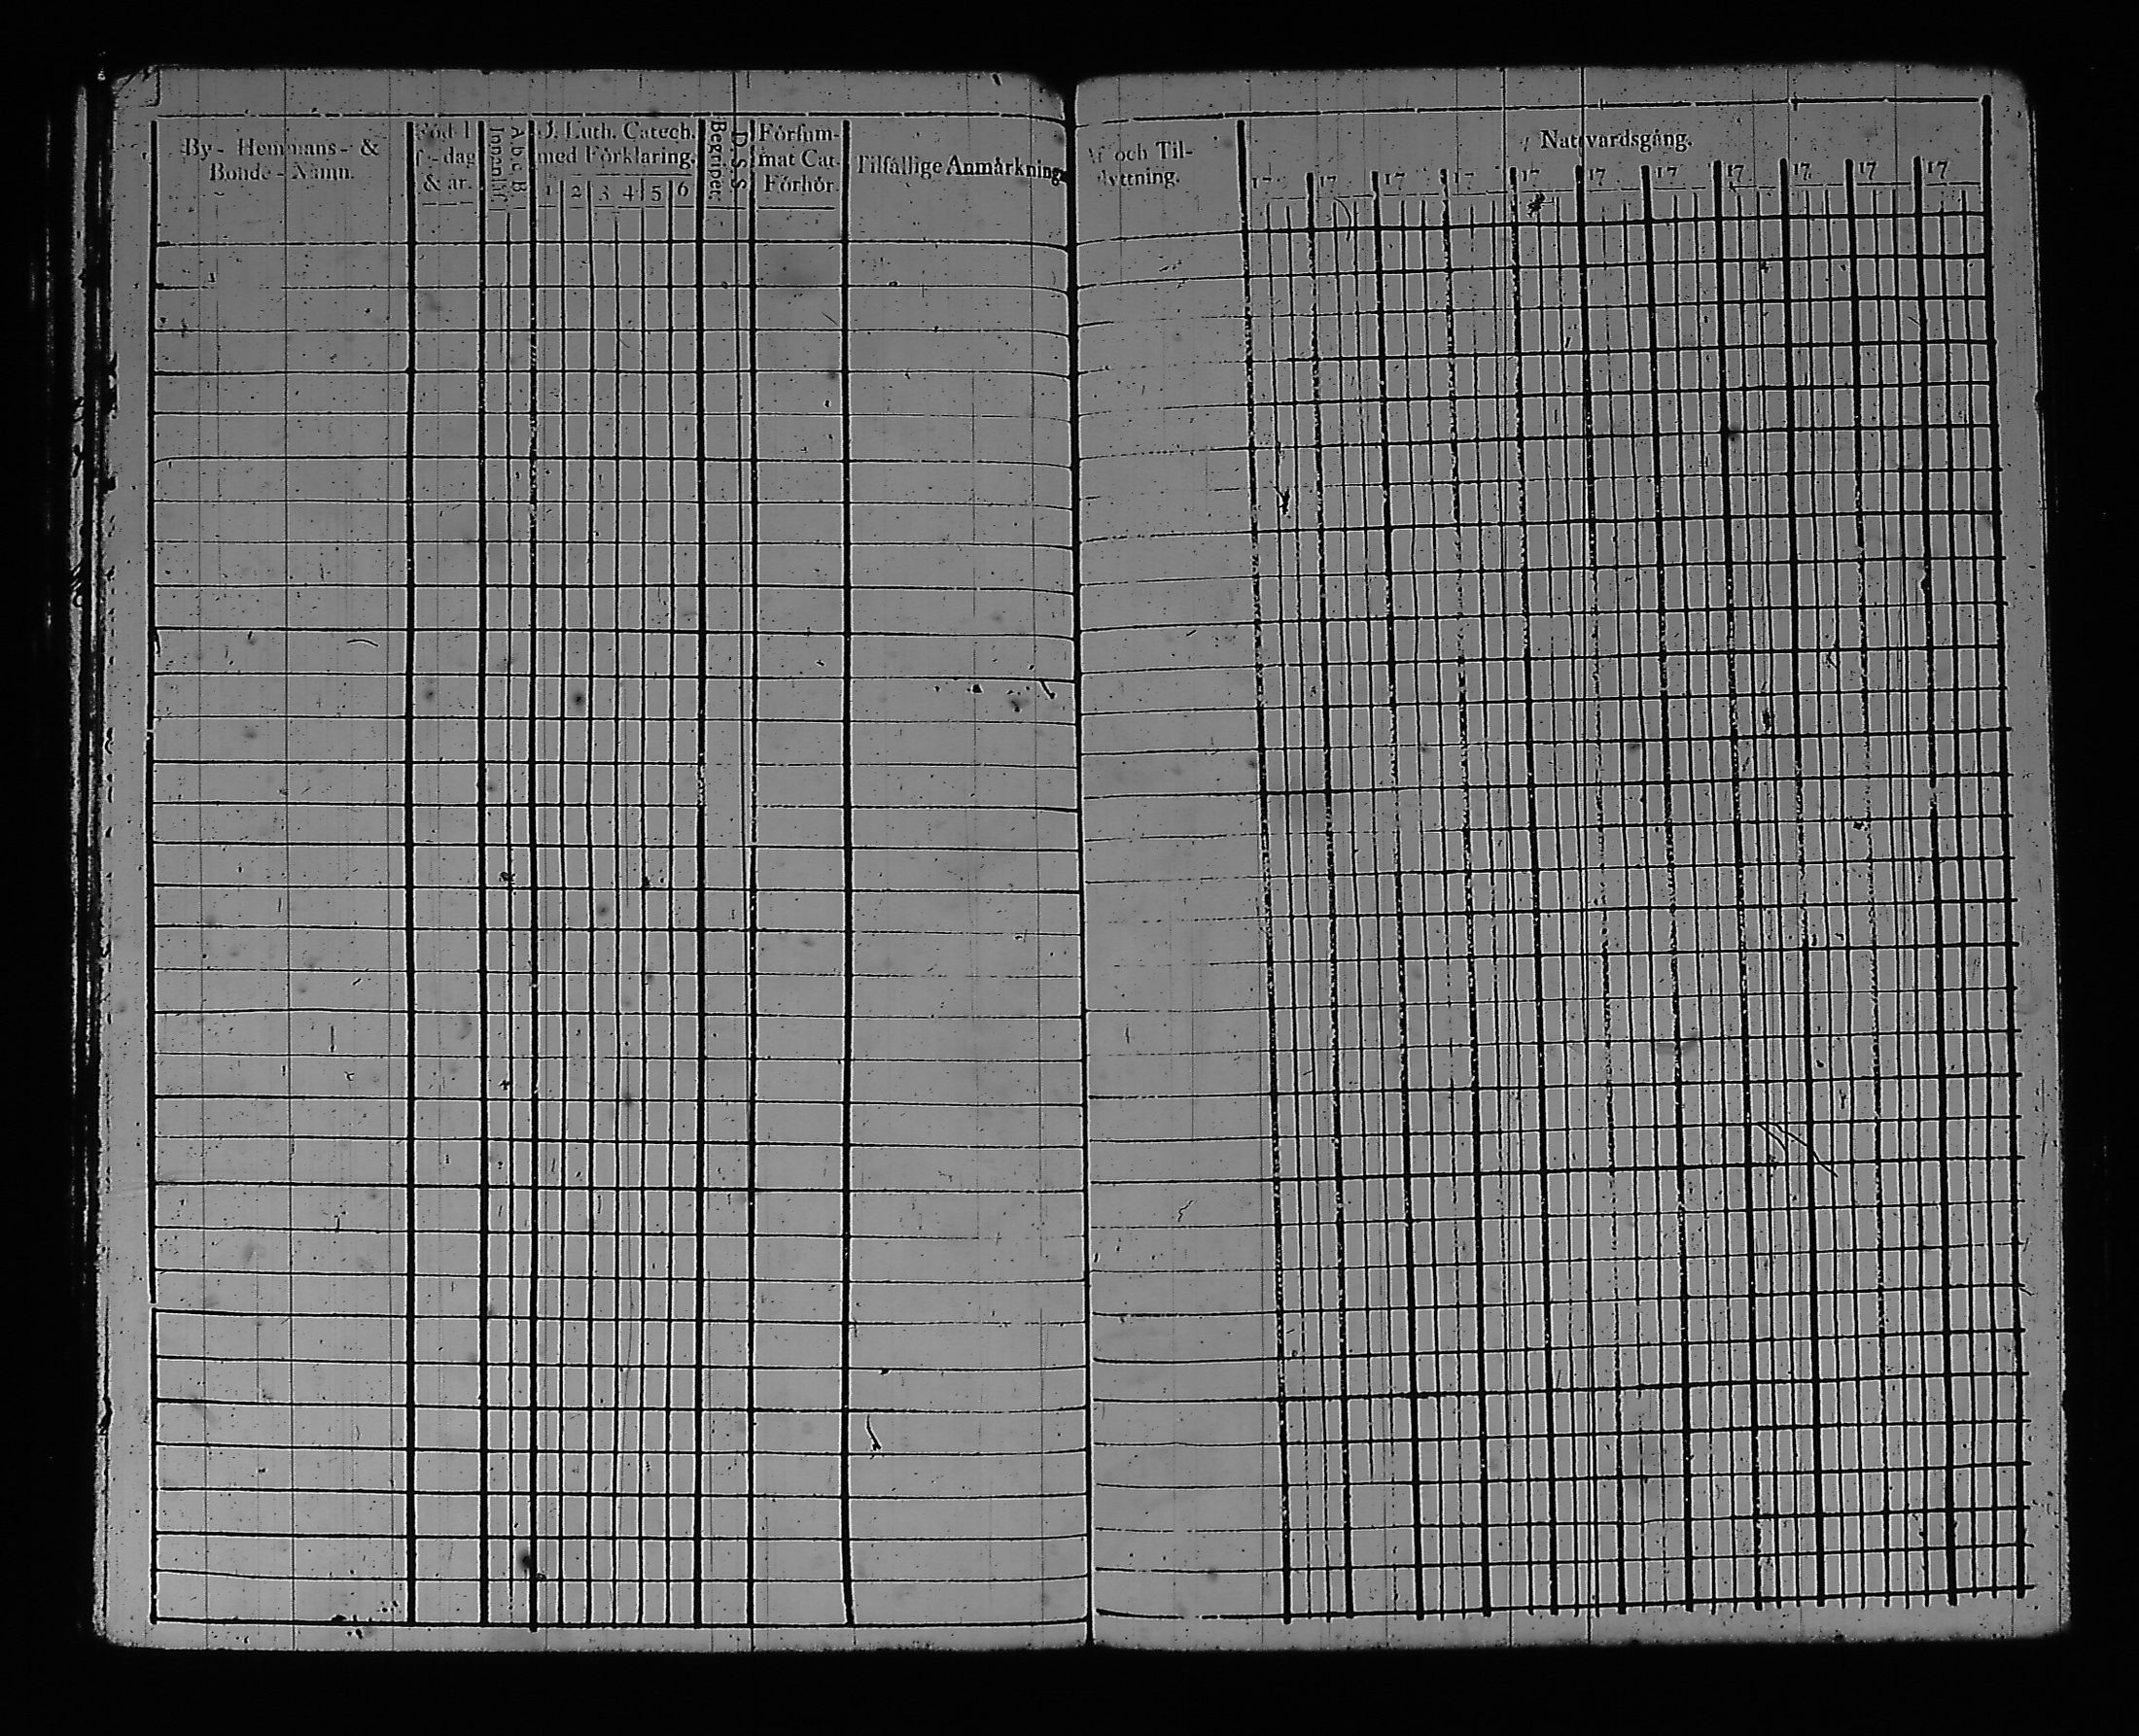 By- Hemmans- &
Bonde-Namn.
Född
dag
& år.
A. b. c. B.
Innanläs.
D. Luth. Catech.
med Förklaring.
1 2 3 4 5 6
D. S. S.
Begriper.
Försum-
mat Cat-
Förhör.
Tilfällige Anmärkning
Af och Til-
flyttning.
Nattvardsgång.
17 17 17 17 17 17 17 17 17 17 17